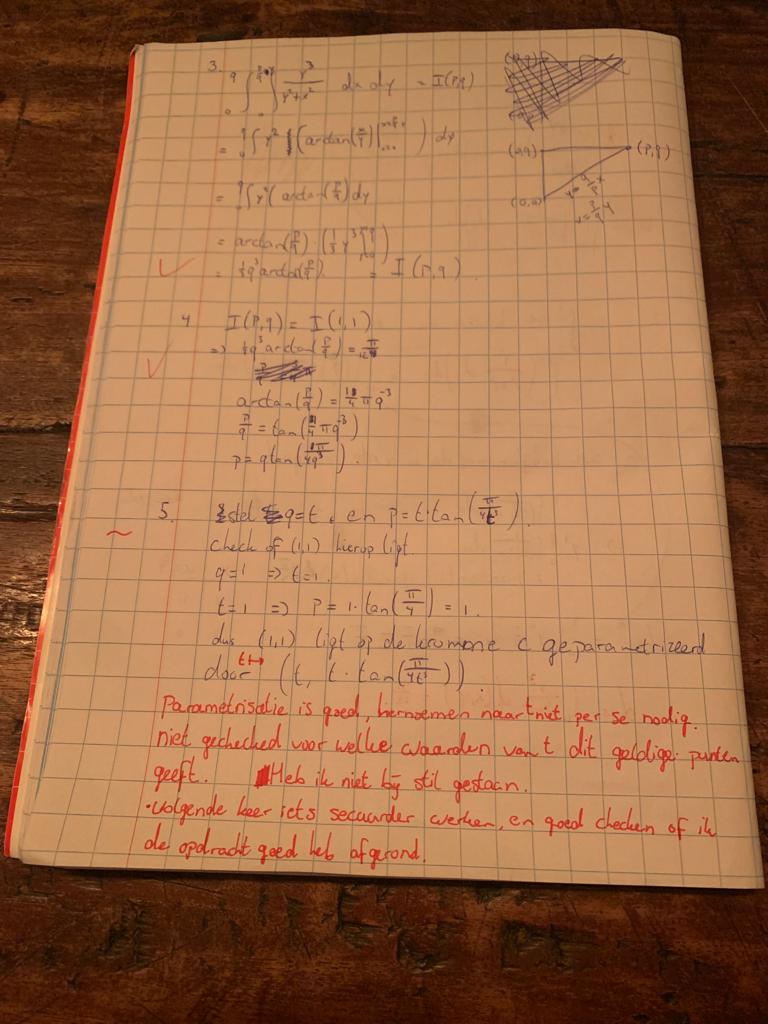 3. ∫₀^q ∫₀^{p/q·y} y³/(y²+x²) dx dy = I(p,q)
= ∫₀^q y² (arctan(x/y)| ) dy
(0,q) (p,q)
= ∫₀^q y² (arctan(p/q)) dy
(0,0) y = q/p x
x = p/q y
= arctan(p/q) · (⅓ y³ |₀^q)
= ⅓q³ arctan(p/q) = I(p,q).
4 I(p,q) = I(1,1)
=> ⅓q³ arctan(p/q) = π/12
arctan(p/q) = ¼ π q⁻³
p/q = tan(¼ π q⁻³)
p = q tan(π/4q³).
5. stel q=t, en p = t·tan(π/4t³).
Check of (1,1) hierop ligt.
q=1 => t=1.
t=1 => p = 1·tan(π/4) = 1.
dus (1,1) ligt op de kromme C geparametrizeerd
door t↦ (t, t·tan(π/4t³)).
~
Parametrisatie is goed, hernoemen naar t niet per se nodig.
niet gechecked voor welke waarden van t dit geldige punten
geeft. Heb ik niet bij stil gestaan.
·volgende keer iets secuurder werken, en goed checken of ik
de opdracht goed heb afgerond.